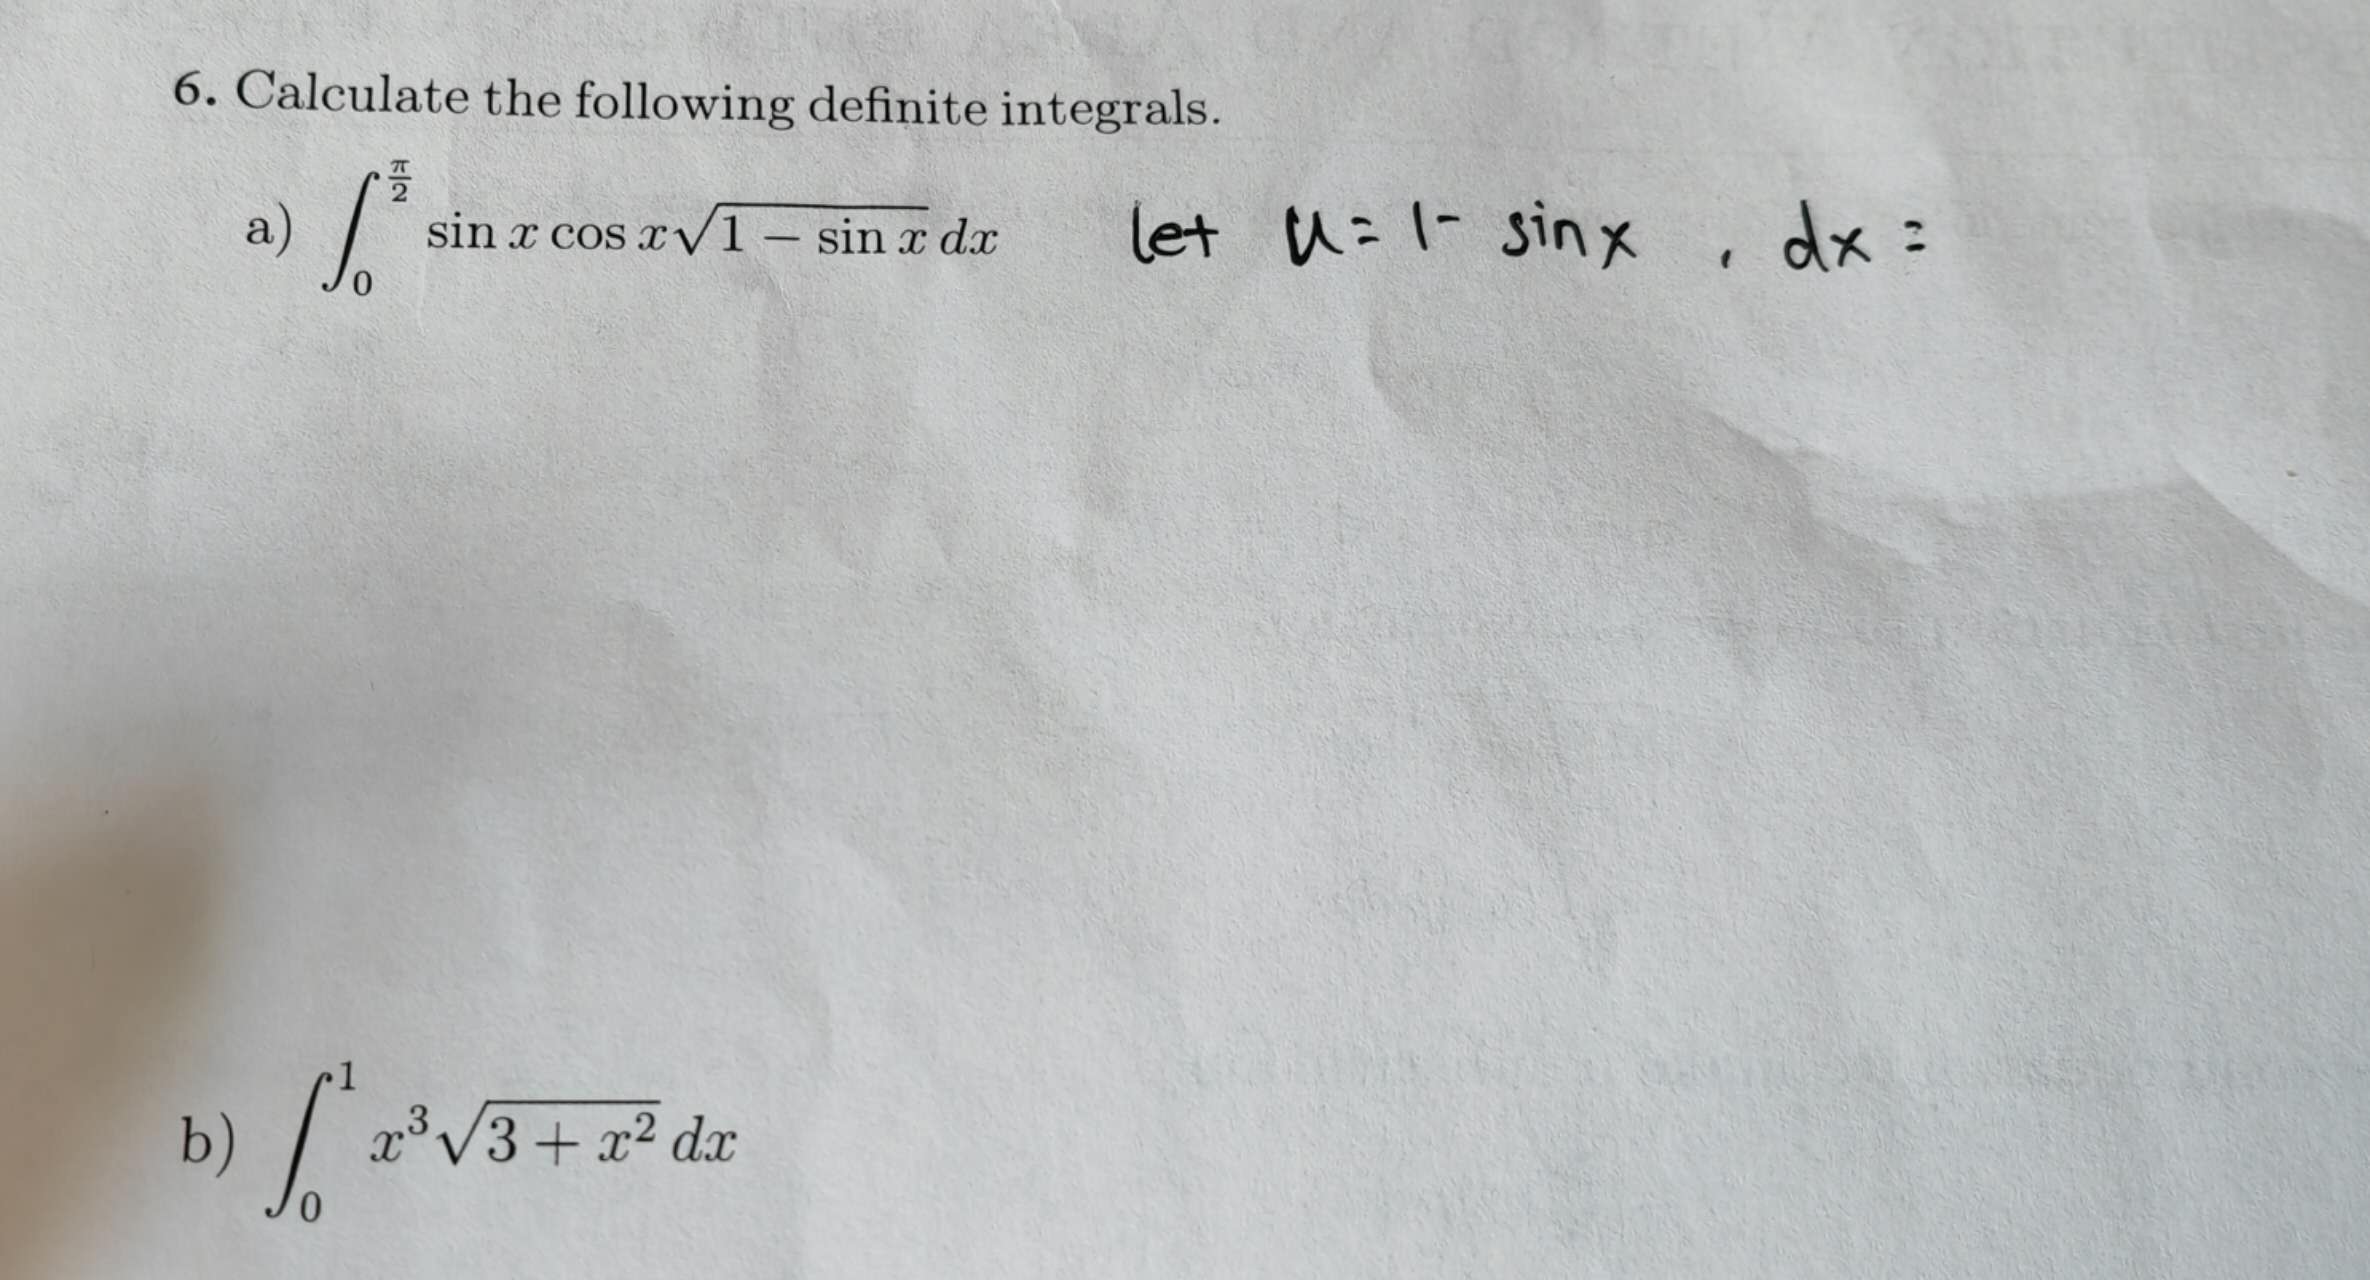 6. Calculate the following definite integrals.
a) ∫₀^{π/2} sin x cos x √(1 − sin x) dx let u = 1 - sin x , dx =
b) ∫₀¹ x³ √(3 + x²) dx